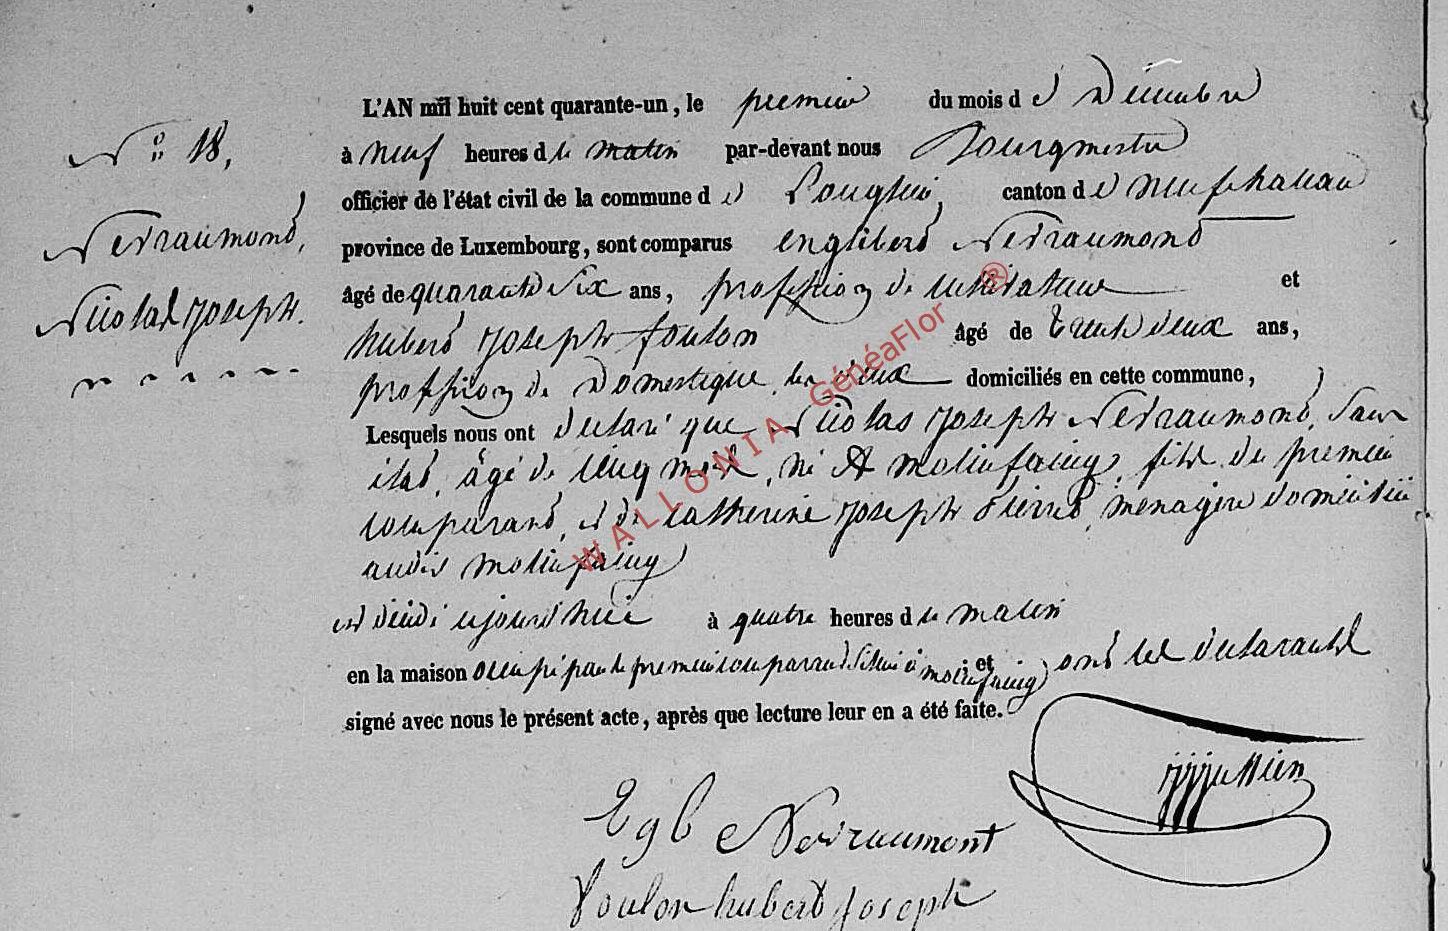 L'AN mil huit cent quarante-un, le premier du mois d e Décembre
N° 18,
à neuf heures d u matin par-devant nous Bourgmestre
officier de l'état civil de la commune d e Longlier, canton d e neufchateau
Nerraumont,
province de Luxembourg, sont comparus englibert Nerraumont
Nicolas Joseph.
âgé de quarante six ans, profession de cultivateur et
hubert joseph foulon âgé de trente deux ans,
profession de Domestique les deux domiciliés en cette commune,
Lesquels nous ont déclaré que Nicolas joseph Nerraumont, Sans
état, âgé de cinq mois, né A molinfaing, fils du premier
comparant, et de catherine joseph Pierret, menagère domiciliée
audit molinfaing
est décédé aujourd'hui à quatre heures d u matin
en la maison occupé par le premier comparant Située à molinfaing et ont les declarants
signé avec nous le présent acte, après que lecture leur en a été faite.
Egb Nerraumont
foulon hubert joseph
WALLONIA GénéaFlor ®